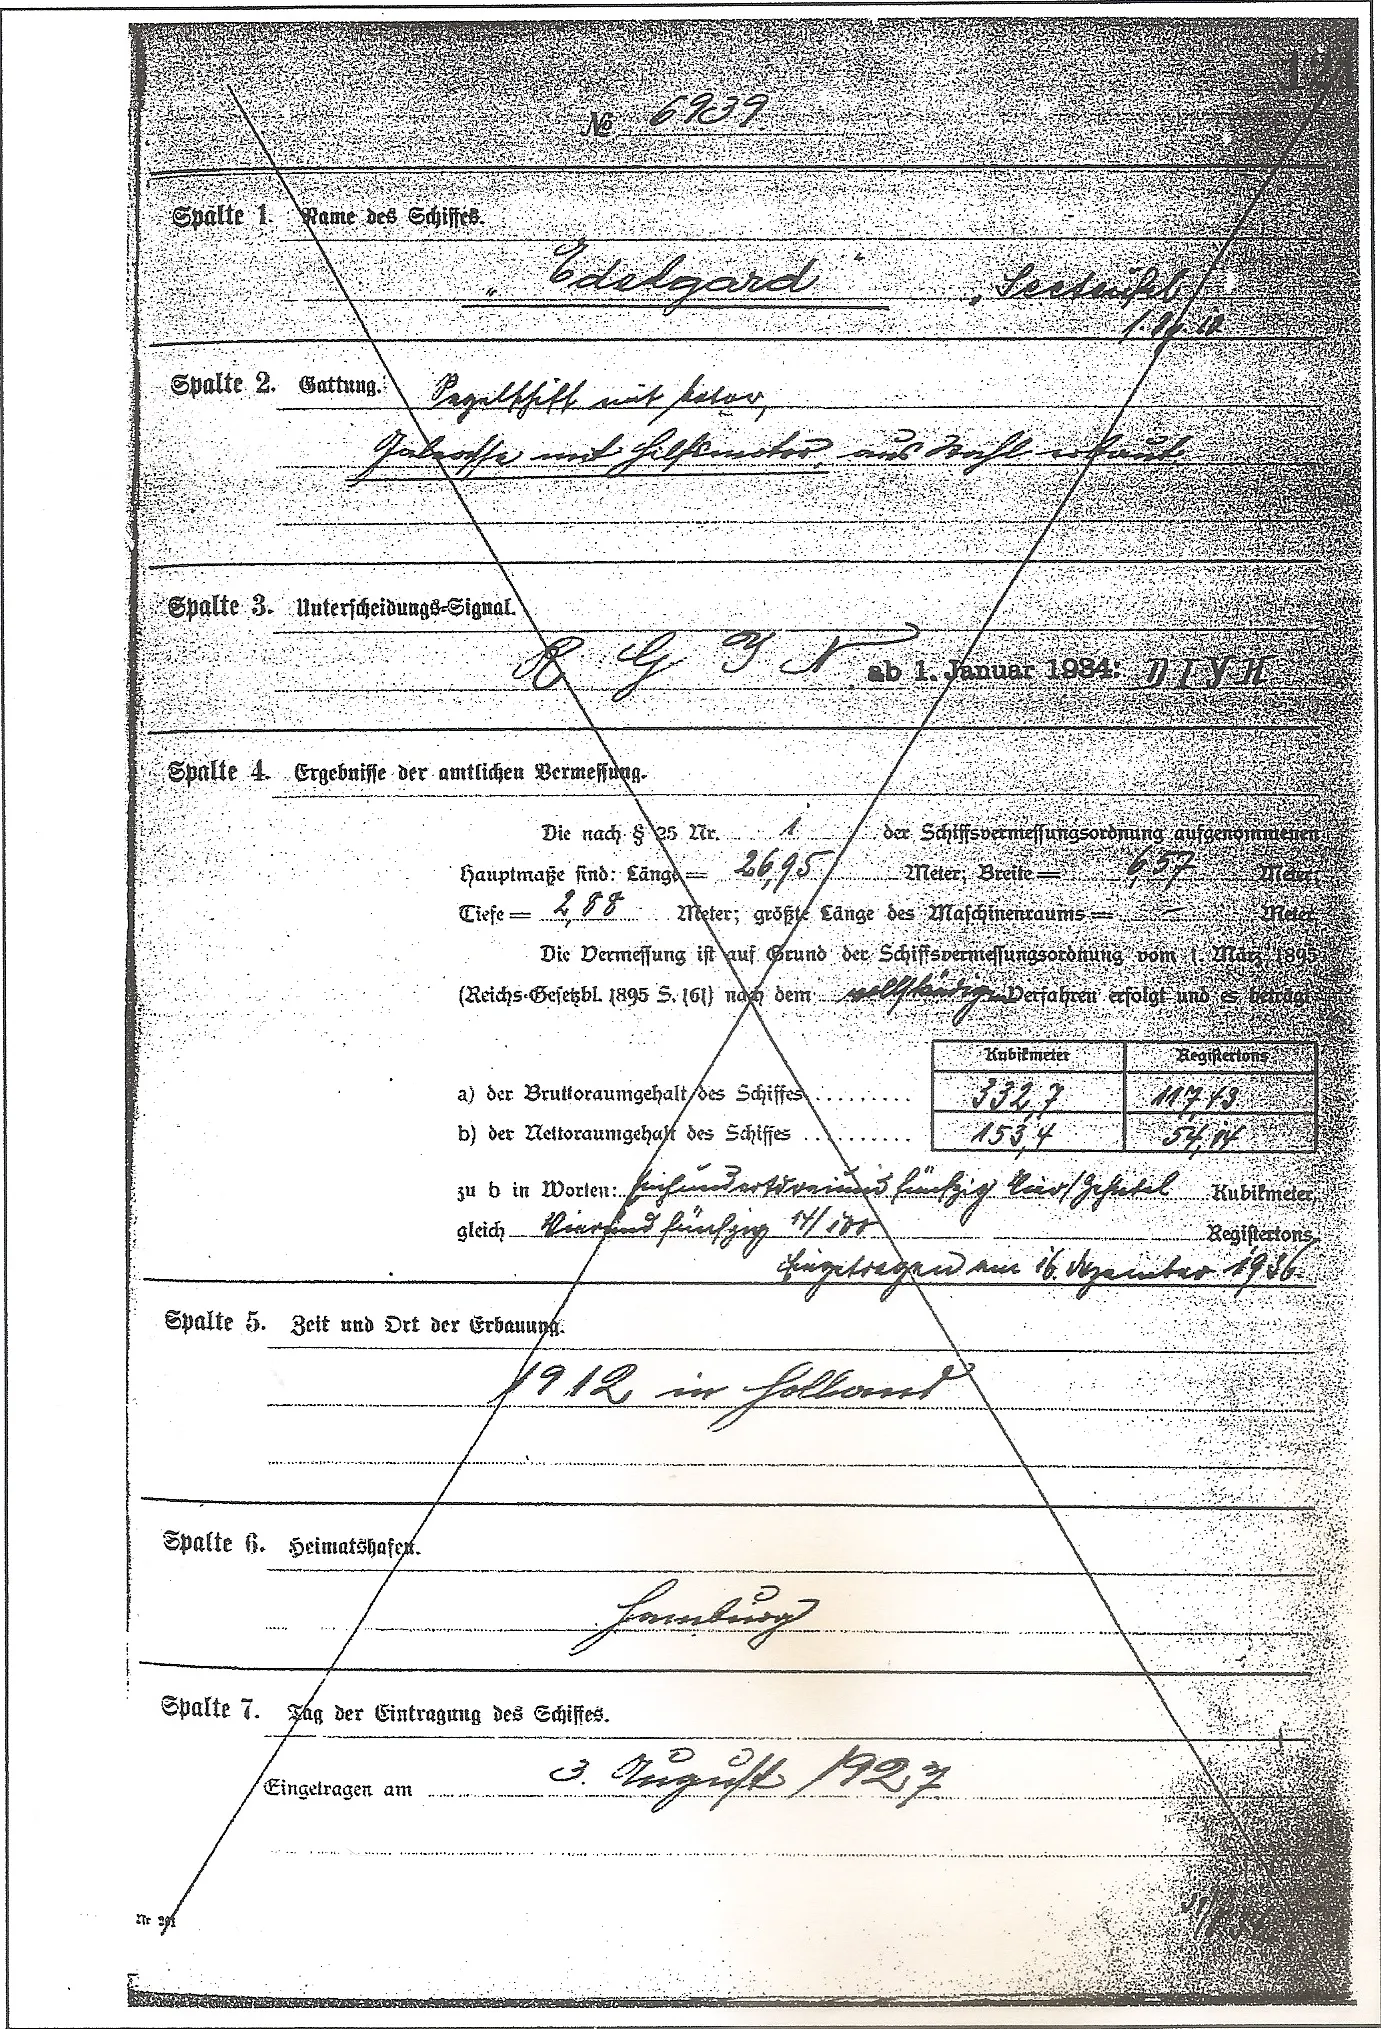 № 6939.
Spalte 1. Name des Schiffes.
„Edelgard“ „Seeteufel
Spalte 2. Gattung. Segelschiff mit Motor,
Galeasse mit Hilfsmotor, aus Stahl erbaut
Spalte 3. Unterscheidungs-Signal.
R G J N ab 1. Januar 1934: D I Y H
Spalte 4. Ergebnisse der amtlichen Vermessung.
Die nach § 25 Nr. 1 der Schiffsvermessungsordnung aufgenommenen
Hauptmaße sind: Länge = 26,95 Meter; Breite = 6,57 Meter;
Tiefe = 2,88 Meter; größte Länge des Maschinenraums = — Meter
Die Vermessung ist auf Grund der Schiffsvermessungsordnung vom 1. März 1895
(Reichs-Gesetzbl. 1895 S. 161) nach dem vollständigen Verfahren erfolgt und es beträgt
Kubikmeter Registertons
a) der Bruttoraumgehalt des Schiffes .......... 332,7 117,43
b) der Nettoraumgehalt des Schiffes .......... 153,4 54,14
zu b in Worten: Einhundertdreiundfünfzig Vier/Zehntel Kubikmeter,
gleich Vierundfünfzig 14/100 Registertons.
Eingetragen am 16. Dezember 1936.
Spalte 5. Zeit und Ort der Erbauung.
1912 in Holland
Spalte 6. Heimatshafen.
Hamburg
Spalte 7. Tag der Eintragung des Schiffes.
Eingetragen am 3. August 1927.
Nr. 201